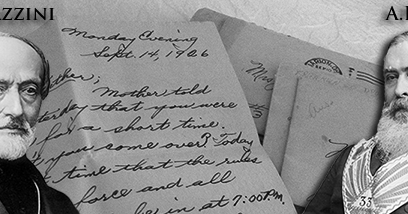 AZZINI
A.
Monday Evening
Sept. 14, 1926
ther;
Mother told
terday that you were
for a short time.
you some over? Today
time that the rules
force and all
be in at 7:00 P.M.
33